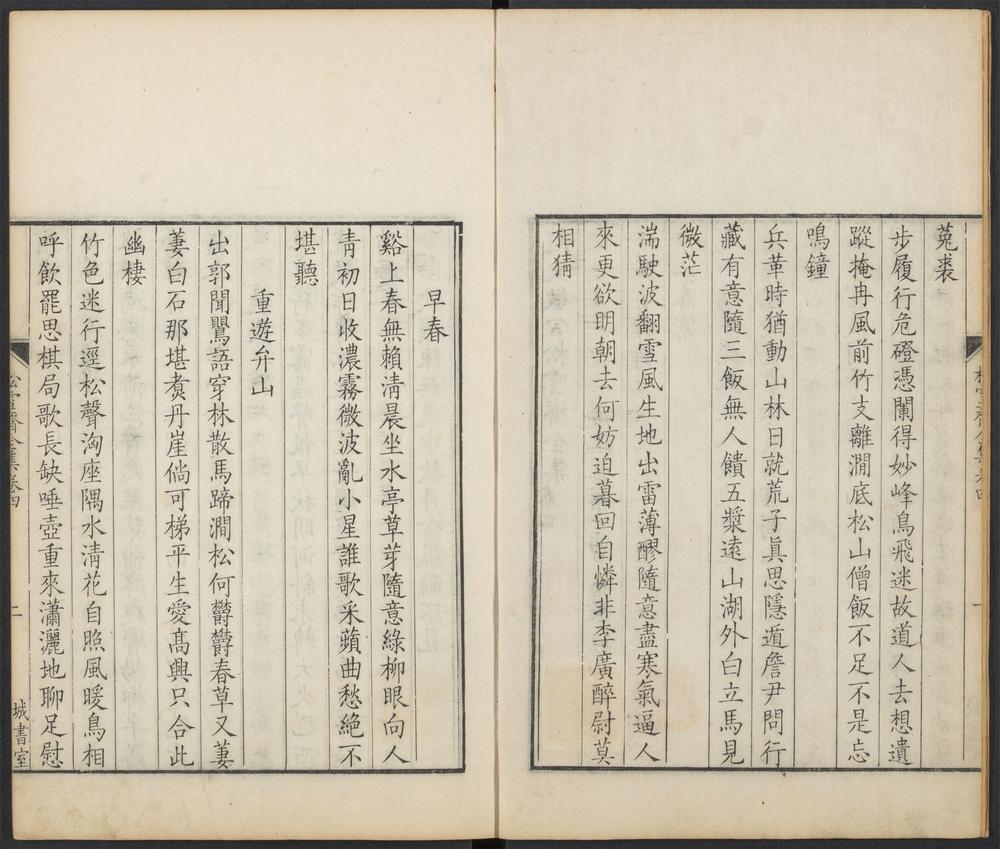 菟裘
步履行危磴憑闌得妙峰鳥飛迷故道人去想遺
蹤掩冉風前竹支離澗底松山僧飯不足不是忘
鳴鐘
兵革時猶動山林日就荒子眞思隱遁詹尹問行
藏有意隨三飯無人饋五漿遠山湖外白立馬見
微茫
湍駛波翻雪風生地出雷薄醪隨意盡寒氣逼人
來更欲明朝去何妨迫暮回自憐非李廣醉尉莫
相猜
早春
谿上春無賴淸晨坐水亭草芽隨意綠柳眼向人
靑初日收濃霧微波亂小星誰歌采蘋曲愁絕不
堪聽
重遊弁山
出郭聞鸎語穿林散馬蹄澗松何鬱鬱春草又萋
萋白石那堪煑丹崖倘可梯平生愛高興只合此
幽棲
竹色迷行逕松聲洶座隅水淸花自照風暖鳥相
呼飲罷思棋局歌長缺唾壺重來瀟灑地聊足慰
松雪齋全集卷四
二
城書室